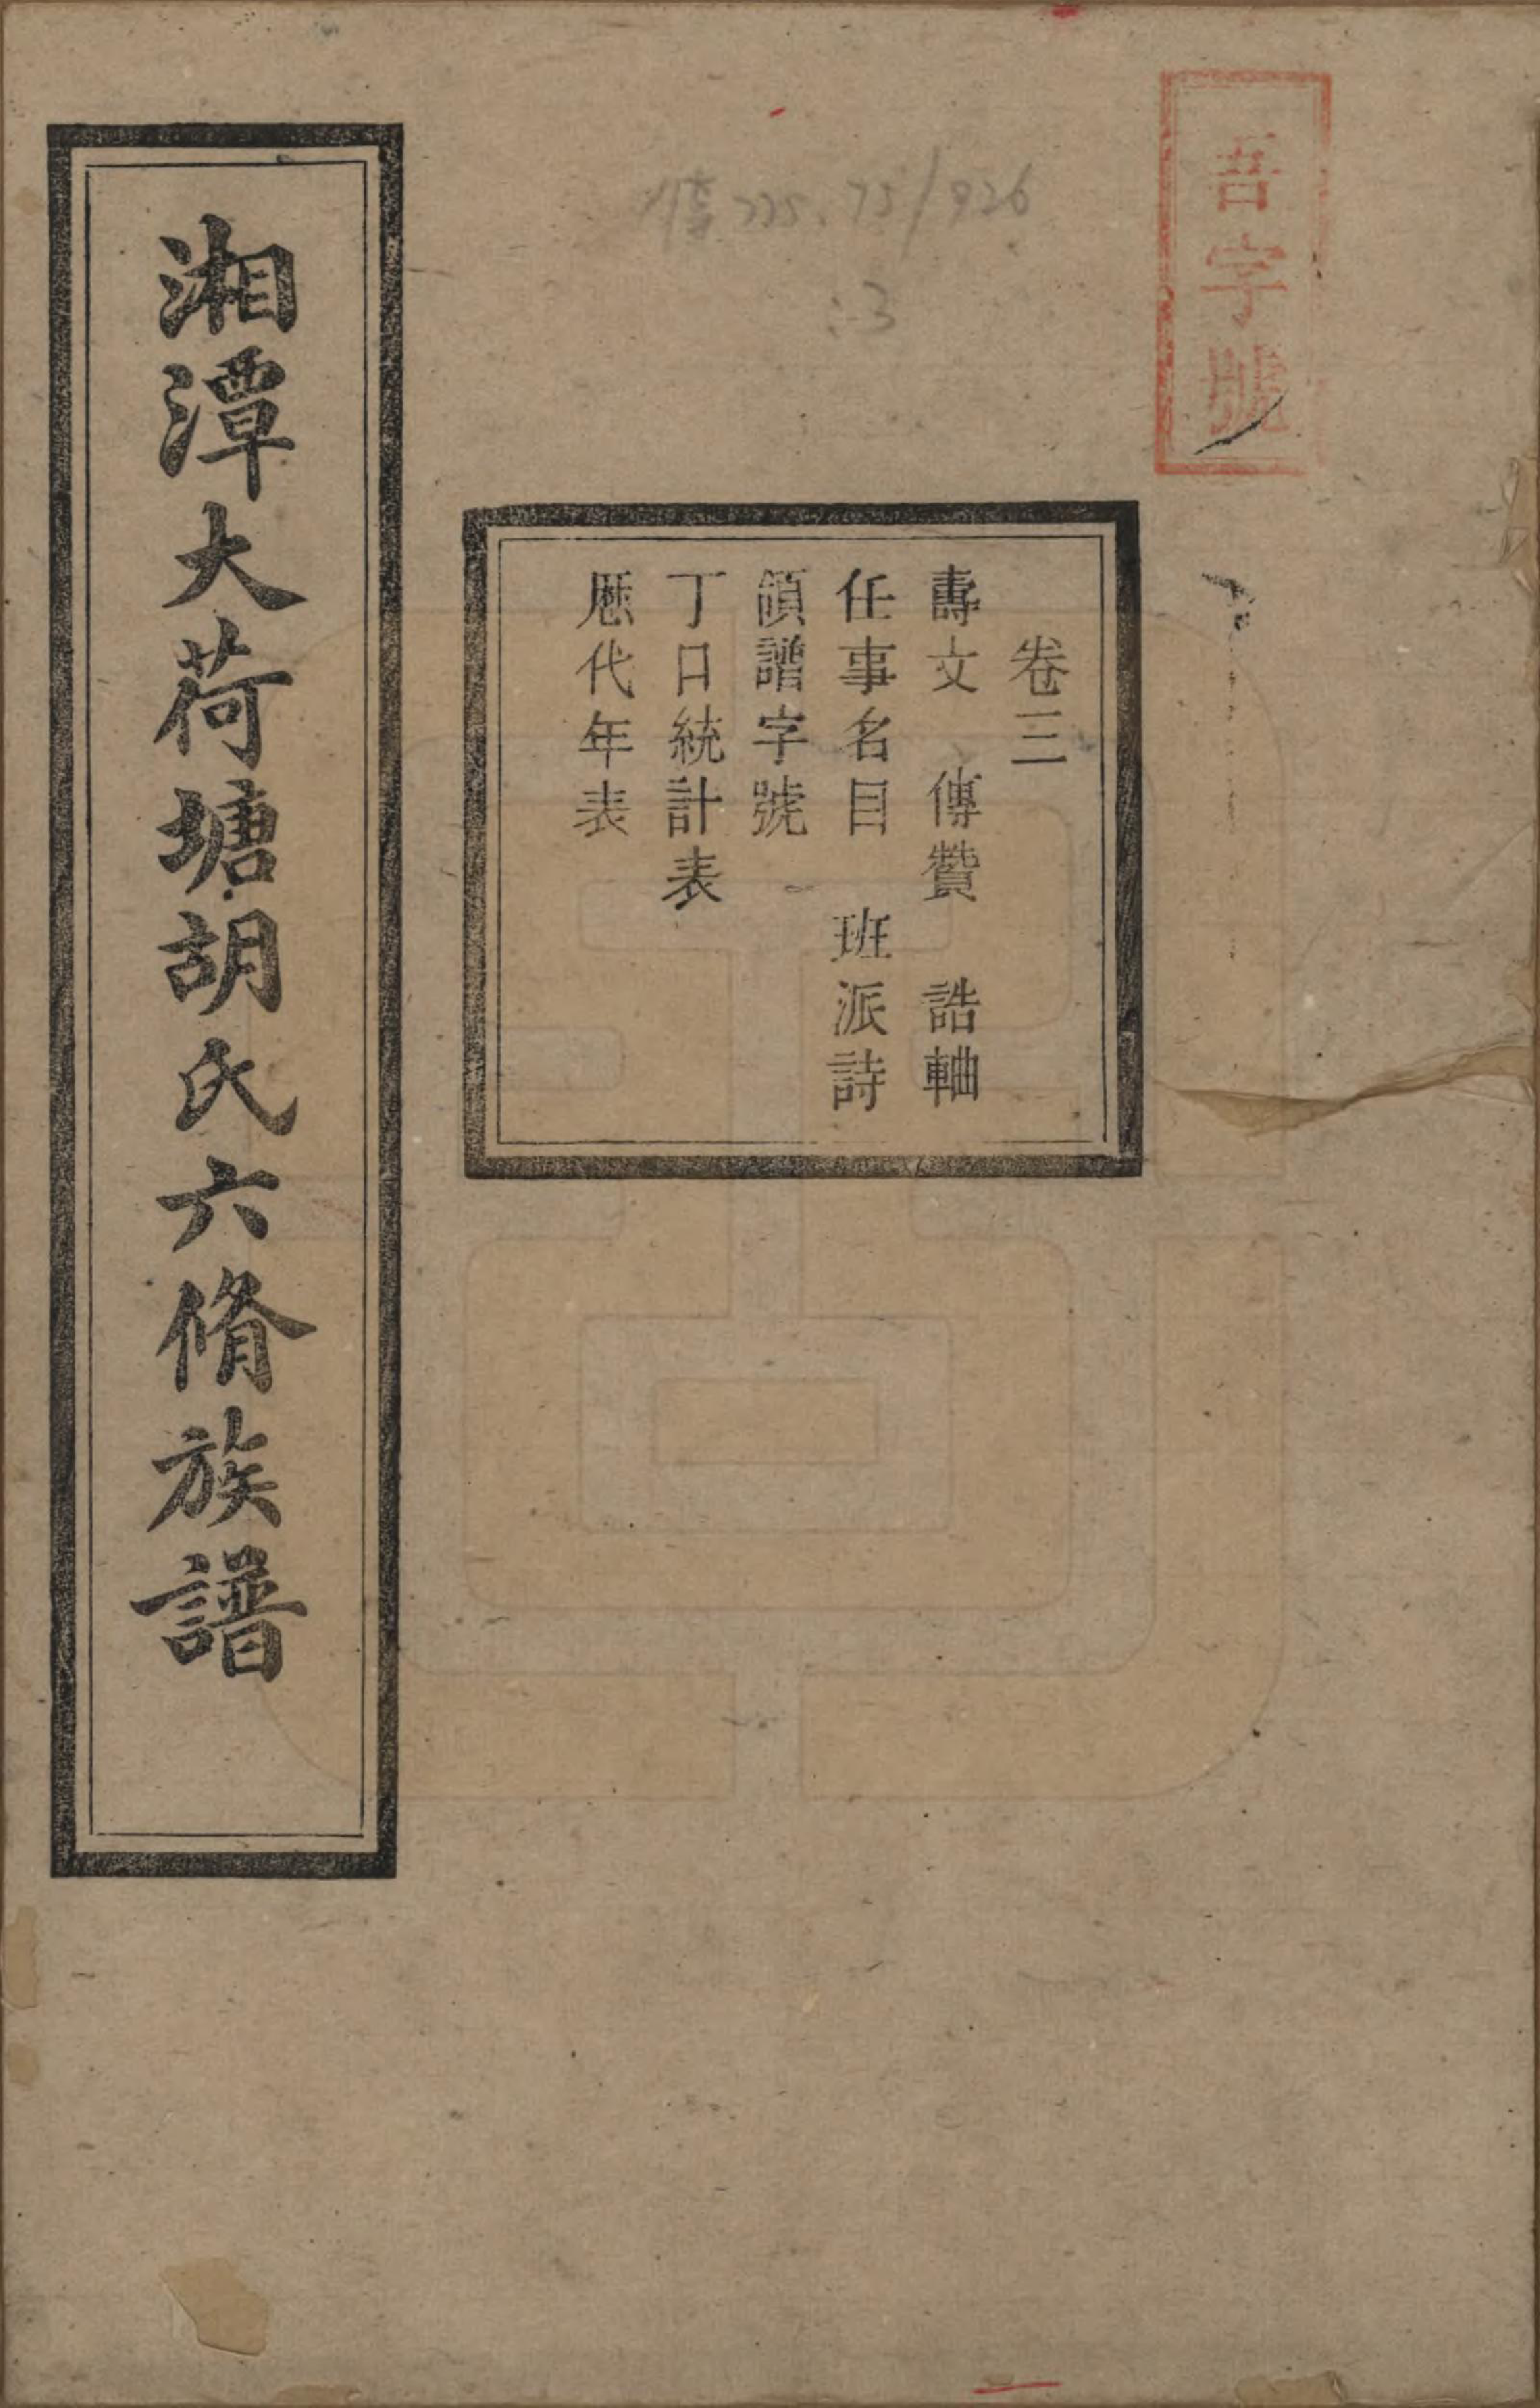 吾字號
卷三
壽文　傳贊　誥軸
任事名目　班派詩
領譜字號
丁口統計表
歷代年表
湘潭大荷塘胡氏六脩族譜
:3